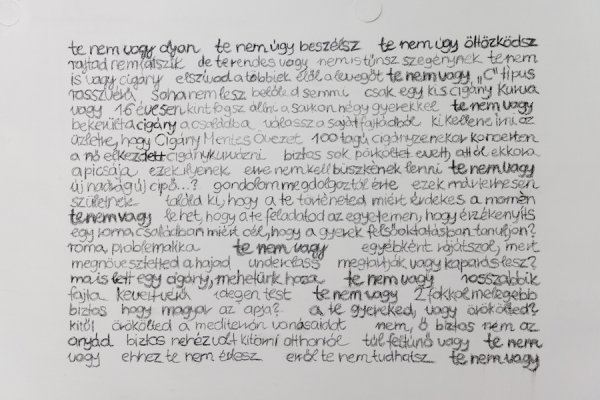 te nem vagy olyan te nem úgy beszélsz te nem úgy öltözködsz
rajtad nem látszik de te rendes vagy nem is tűnsz szegénynek te nem
is vagy cigány elszívod a többiek elől a levegőt te nem vagy „C” típus
rosszvérű soha nem lesz belőled semmi csak egy kis cigány kurva
vagy 16 évesen kint fogsz állni a sarkon négy gyerekkel te nem vagy
bekerült a cigány a családba válassz a saját fajtádból ki kellene írni az
üzletre, hogy Cigány Mentes Övezet 100 tagú cigányzenekar koncerten
a nő elkezdett cigánykurvázni biztos sok pörköltet evett, attól ekkora
a picsája ezek ilyenek erre nem kell büszkének lenni te nem vagy
új nadrág új cipő...? gondolom megdolgoztál érte ezek már terhesen
születnek találd ki, hogy a te történeted miért érdekes a
te nem vagy lehet, hogy a te feladatod az egyetemen, hogy érzékenyíts
egy roma családban miért cél, hogy a gyerek felsőoktatásban tanuljon?
roma problematika te nem vagy egyébként rájátszol, mert
megnövesztetted a hajad underclass megtartják vagy kaparás lesz?
ma is lett egy cigány, mehetünk haza te nem vagy rosszabbik
fajta kevert vérű idegen test te nem vagy 2 fokkal melegebb
biztos hogy magyar az apja? a te gyereked, vagy örökölted?
kitől örökölted a mediterrán vonásaidat nem, ő biztos nem az
anyád biztos nehéz volt kitörni otthonról túl feltűnő vagy te nem
vagy ehhez te nem értesz erről te nem tudhatsz te nem vagy